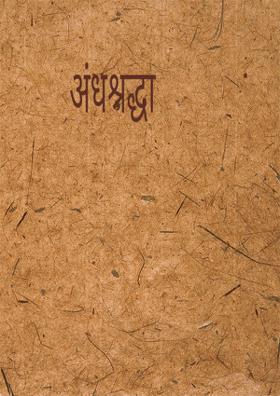 अंधश्रद्धा